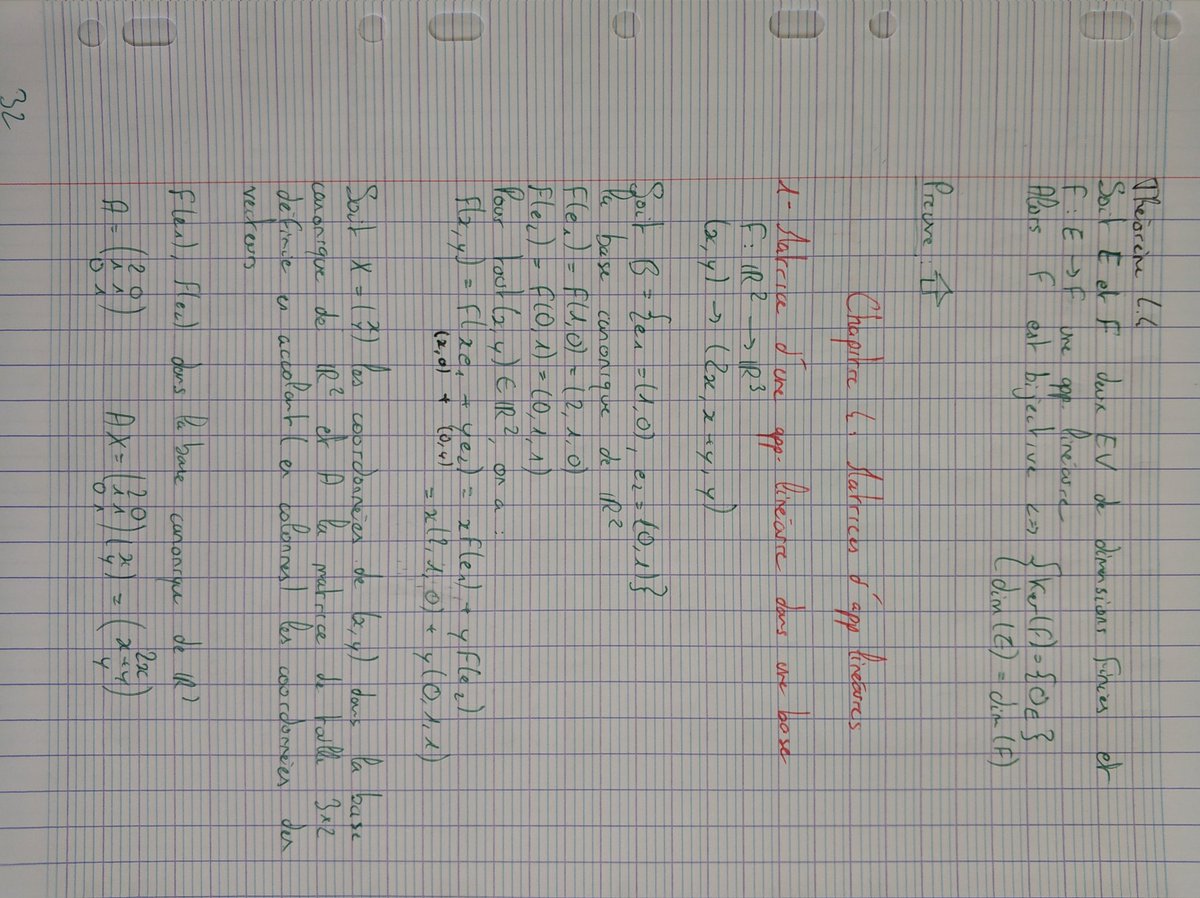 Théorème 4.4
Soit E et F deux EV de dimensions finies et
f : E → F une app. linéaire
Alors f est bijective <=> { Ker(f) = {0E}
{ dim(E) = dim(F)
Preuve : ⇑
Chapitre 4 : Matrices d'app linéaires
1- Matrice d'une app. linéaire dans une base
f : ℝ² → ℝ³
(x,y) → (2x, x+y, y)
Soit B = {e1 = (1,0), e2 = (0,1)}
la base canonique de ℝ²
f(e1) = f(1,0) = (2,1,0)
f(e2) = f(0,1) = (0,1,1)
Pour tout (x,y) ∈ ℝ², on a :
f(x,y) = f(xe1 + ye2) = xf(e1) + yf(e2)
(x,0) + (0,y)
= x(2,1,0) + y(0,1,1)
Soit X = (x y) les coordonnées de (x,y) dans la base
canonique de ℝ² et A la matrice de taille 3x2
définie en accolant (en colonnes) les coordonnées des
vecteurs
f(e1), f(e2) dans la base canonique de ℝ³
A = (2 0 1 1 0 1) AX = (2 0 1 1 0 1)(x y) = (2x x+y y)
32